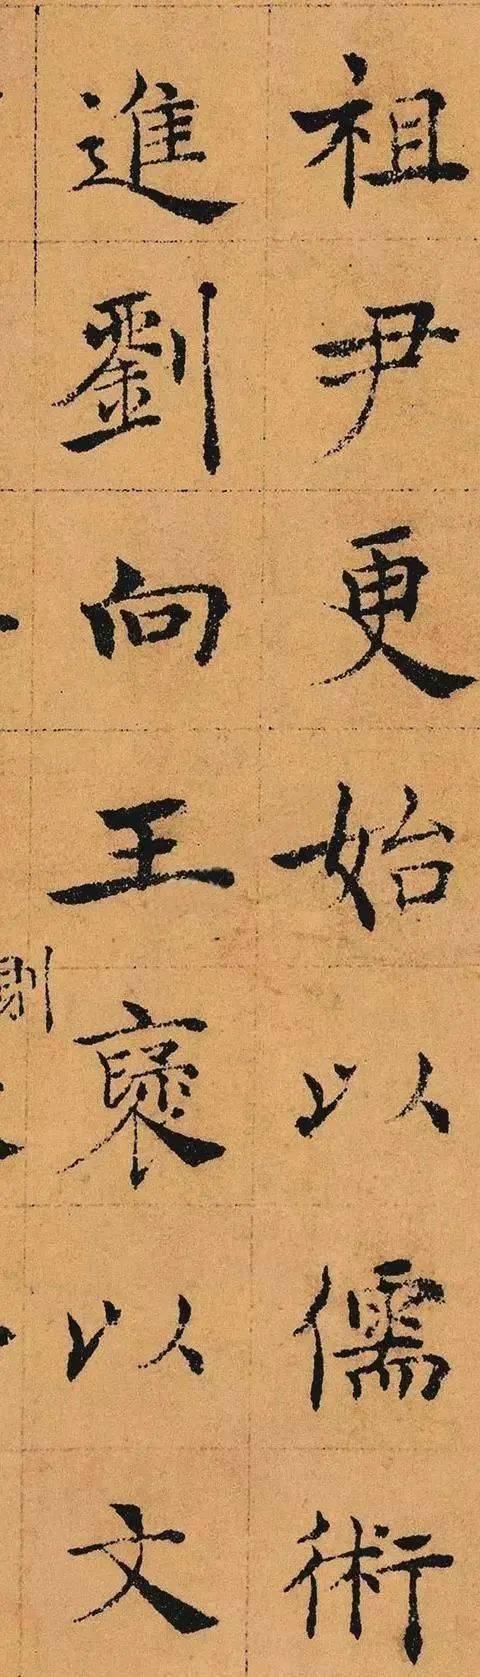 祖尹更始以儒術
進劉向王褒以文